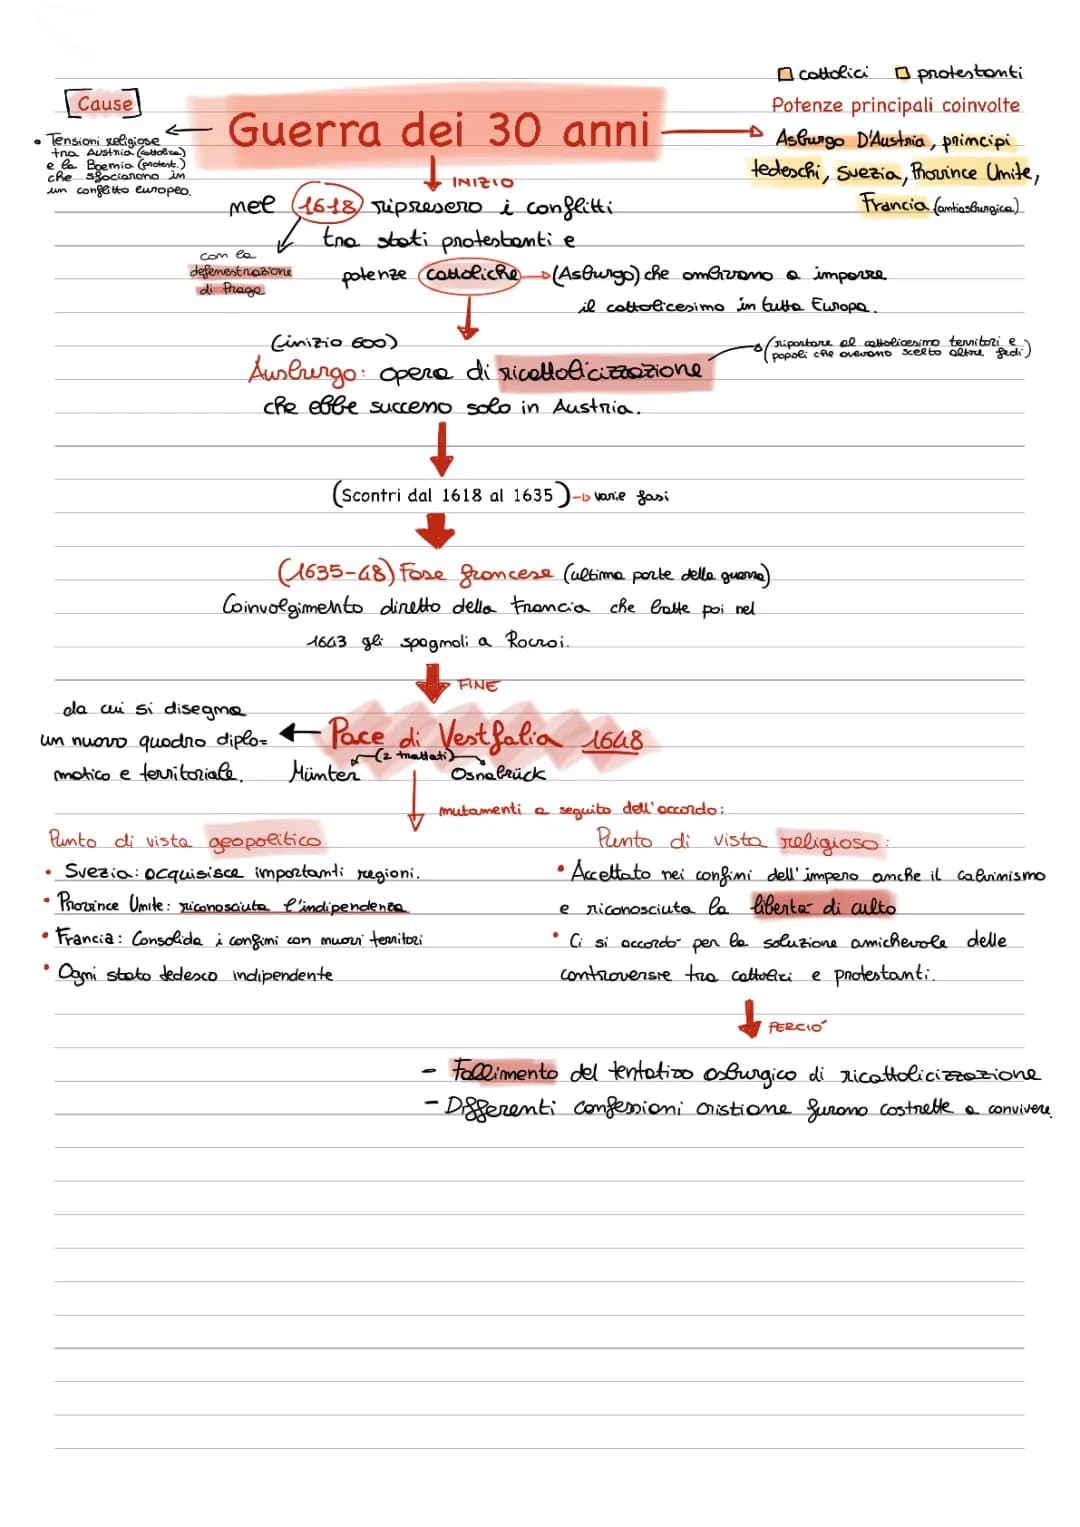 cattolici protestanti
[Cause]
Potenze principali coinvolte
Guerra dei 30 anni
• Tensioni religiose
tra Austria (cattolica)
e la Boemia (protest.)
che sfociarono in
un conflitto europeo.
Asburgo D'Austria, principi
tedeschi, Svezia, Province Unite,
Francia (antiasburgica)
INIZIO
nel 1618 ripresero i conflitti
tra stati protestanti e
con la
defenestrazione
di Praga
potenze cattoliche (Asburgo) che ambivano a imporre
il cattolicesimo in tutta Europa.
(inizio 600)
(riportare al cattolicesimo territori e
popoli che avevano scelto altre fedi)
Ausburgo: opera di ricattolicizzazione
che ebbe successo solo in Austria.
(Scontri dal 1618 al 1635) varie fasi
(1635-48) Fase francese (ultima parte della guerra)
Coinvolgimento diretto della Francia che batte poi nel
1643 gli spagnoli a Rocroi.
FINE
da cui si disegna
un nuovo quadro diplo=
matico e territoriale.
Pace di Vestfalia 1648
(2 trattati)
Münter Osnabrück
mutamenti a seguito dell'accordo:
Punto di vista geopolitico
• Svezia: acquisisce importanti regioni.
• Province Unite: riconosciuta l'indipendenza
• Francia: Consolida i confini con nuovi territori
• Ogni stato tedesco indipendente
Punto di vista religioso:
• Accettato nei confini dell'impero anche il calvinismo
e riconosciuta la libertà di culto
• Ci si accordò per la soluzione amichevole delle
controversie tra cattolici e protestanti.
PERCIÓ
- Fallimento del tentativo asburgico di ricattolicizzazione
- Differenti confessioni cristiane furono costrette a convivere